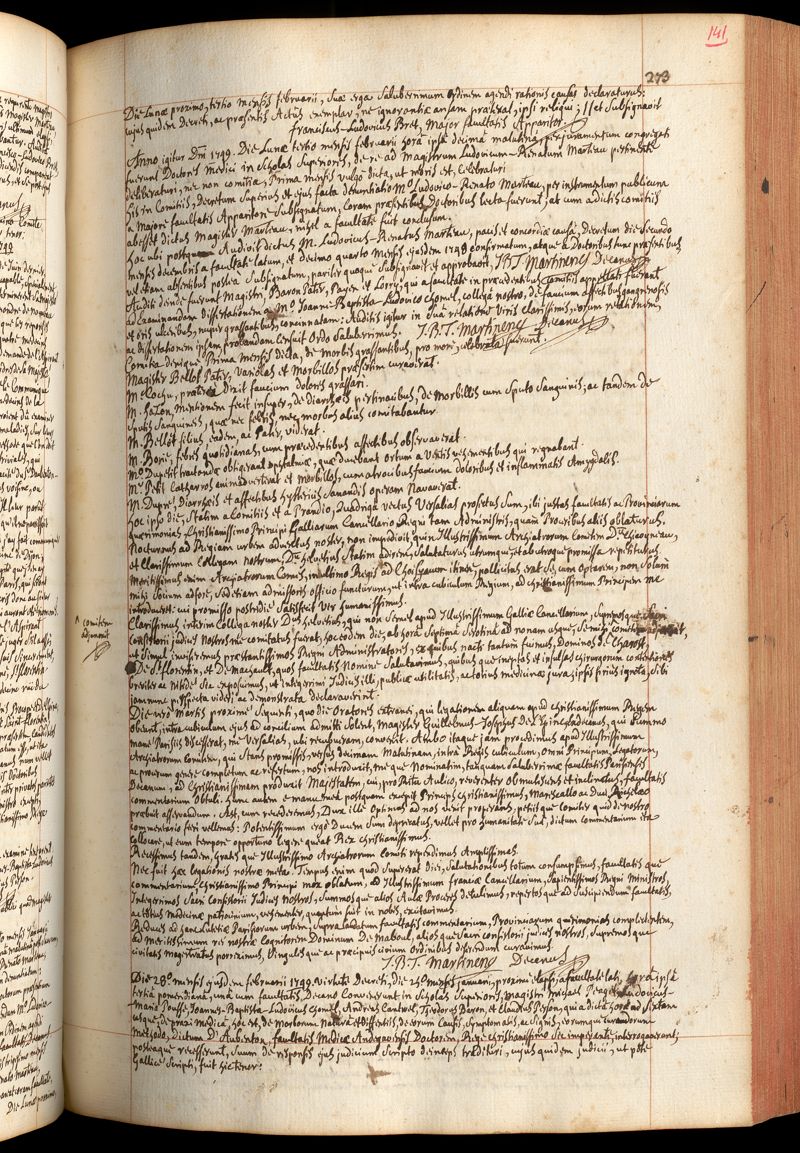 141
273
Die Lunæ proximo, tertio mensis februarii, suæ erga Saluberrimum Ordinem agendi rationis causas declaraturus:
cujus quidem Decreti, ac præsentis Actûs exemplar, ne ignorantiæ ansam prætexat, ipsi reliqui; et Subsignavit
franciscus-Ludovicus Bret, Major facultatis Apparitor.
Anno igitur Dni 1749. Die Lunæ tertio mensis februarii horâ ipsâ decimâ matutinâ, per juramentum congregati
fuerunt Doctores Medici in Scholas Superiores, de re ad Magistrum Ludovicum-Renatum Marteau pertinente
deliberaturi, nec non comitia, Prima mensis vulgo dicta, ut moris est, celebraturi
his in Comitiis, Decretum Superius et ejus facta denuntiatio M.º Ludovico-Renato Marteau, per instrumentum publicum
à Majore facultatis Apparitore Subsignatum, Coram præsentibus Doctoribus lecta fuerunt, at cum à dictis comitiis
abesset dictus Magister Marteau, nihil a facultate fuit conclusum.
hoc ubi postquam Audivit dictus M. Ludovicus-Renatus Marteau, pacis et concordiæ causâ, Decretum die Secundo
mensis decembris a facultate latum, et decimo quarto Mensis ejusdem 1748 confirmatum, atque a Doctoribus tunc præsentibus,
vel etiam absentibus postea Subsignatum, pariter quoque Subsignavit et approbavit. J.B.T. Martinenq Decanus
Auditi deinde fuerunt Magistri, Baron Pater, Payen et Lorry, qui a facultate in præcedentibus Comitiis appellati fuerant
ad Examinandam Dissertationem a M.º Joanne-Baptista-Ludovico Chomel, collega nostro, de faucium affectibus gangrenosis
et oris ulceribus, nuper grassantibus, concinnatam: Auditis igitur in sua relatione Viris clarissimis, eorum relationem,
ac dissertationem ipsam probandam Censuit Ordo Saluberrimus. J.B.T. Martinenq Decanus
Comitia denique Prima mensis dicta, de morbis grassantibus, pro more, celebrata fuerunt.
Magister Bellot Pater, Variolas et Morbillos præsertim curaverat.
M. Cochu, præterea Dixit faucium dolores grassari.
M. Salon, Mentionem fecit insuper, de diarrhæis pertinacibus, de Morbillis cum Sputo Sanguinis; ac tandem de
Sputis Sanguineis, quæ nec febris, nec morbus alius comitabantur
M. Bellot filius, eadem, ac Pater, viderat.
M. Borie, febres quotidianas, cum præcedentibus affectibus observaverat.
M.º Dupetit tractandæ obtigerant opthalmiæ, quæ ducebant ortum a Ventis vehementibus qui regnabant.
M.º Petit Catharros animadverterat et Morbillos, cum atrocibus faucium doloribus et inflammatis Amygdalis.
M. Dupré, Diarrhæis et affectibus hystericis Sanandis operam Navaverat.
hoc ipso die, Statim a Comitiis et a Prandio, Quadriga vectus Versalias profectus Sum, ibi justas facultatis ac Provinciarum
querimonias, Christianissimo Principi Galliarum Cancellario, Regni tam Administris, quam Proceribus aliis oblaturus.
Nocturnus ad Regiam urbem advectus noster, non impedivit, quin Illustrissimum Archiatrorum Comitem D. Chicoyneau,
et Clarissimum Collegam nostrum, D. helvetius Statim adirem, Salutaturus utrumque, et ab utroque promissa repetiturus
Meritissimus enim Archiatrorum Comes, in ultimo Regis ad Choisyacum itinere, pollicitus erat se, cum optarem, non Solum
mihi Obviam adfore, Sed etiam admissoris officio functurum, ut intra cubiculum Regium, ad christianissimum Principem me
introduceret: cui promisso postridie Satisfecit Vir humanissimus.
Clarissimus interim Collega noster D. helvetius, qui non semel apud Illustrissimum Galliæ Cancellarium, Supremosque Sacri
Consistorii judices Nostros me comitatus fuerat, hoc eodem die, ab hora Septima Serotina ad nonam usque, se mihi
^ comitem adjunxit
ut simul inviseremus præstantissimos Regni Administratores, ex quibus nacti tantum fuimus, Dominos de
De St florentin, et De Machault, quos facultatis Nomine Salutavimus, quibus que ineptas et insulsas chirurgorum contentiones
breviter ac nitide Sic exposuimus, ut integerrimi Judices illi, publicæ utilitatis, ac totius medicinæ jura, ipsis prius ignota, sibi
jam nunc perspecta videri ac demonstrata declaraverint.
Die vero Martis proxime Sequenti, quo die Oratores extranei, qui legationem aliquam apud christianissimum Regem
obeunt, intra cubiculum ejus ad concilium admitti Solent, Magister Guillelmus-Josephus De l'Epine, qui Summo
mane Parisiis discesserat, me Versaliis, ubi recubueram, convenit. Ambo itaque jam procedimus apud Illustrissimum
Archiatrorum Comitem, qui Stans promissis, versus decimam Matutinam, intra Regis cubiculum, Omni Principum, Legatorum,
ac procerum genere completum ac refertum, nos introduxit, me que Nominatim, tanquam Saluberrimæ facultatis Parisiensis
Decanum, ad Christianissimam produxit Majestatem, cui, pro Ritu Aulico, reverenter obmutescens et inclinatus, facultatis
commentarium obtuli. Hunc autem e manu mea postquam excepit Princeps christianissimus, Marescallo ac Duci
præbuit asservandum. Ast, cum recederemus, Dux ille Optimus ad nos venit properans, petiit que comiter quid de nostro
commentario fieri vellemus: Potentissimum ergo Ducem Sum deprecatus, vellet pro humanitate Sua, dictum commentarium ita
collocare, ut eum tempore opportuno legere queat Rex christianissimus.
Recessimus tandem, Grates que Illustrissimo Archiatrorum Comiti rependimus Amplissimas.
Nec fuit hæc legationis nostræ meta. Tempus enim quod Supererat diei, Salutationibus totum consumpsimus, facultatis que
commentarium, Christianissimo Principi mox oblatum, ad Illustrissimum franciæ Cancellarium, Sapientissimos Regni Ministros,
Integerrimos Sacri consistorii Judices nostros, Summos que alios Aulæ Proceres detulimus, repertos que ad Suscipiendum facultatis,
ac totius Medicinæ patrocinium, vehementer, quantum fuit in nobis, excitavimus.
Redux ad hanc Lutetiæ Parisiorum urbem, Supra laudatum facultatis commentarium, Provinciarum querimonias complectentem,
ad Meritissimum rei nostræ Cognitorem Dominum De Maboul, alios que Sacri consistorii judices nostros, Supremos que
civitatis magistratus porreximus, Singulis qui ac præcipuis civium ordinibus differendum curavimus.
J.B.T. Martinenq Decanus
Die 28.º mensis ejusdem februarii 1749. Virtute Decreti, die 25.º mensis januarii, proxime elapsi a facultate lati, hora ipsa
tertia pomeridiana, una cum facultatis Decano Convenerunt in Scholas Superiores, Magistri Michael Peaget, Ludovicus-
Maria Pousse, Joannes-Baptista-Ludovicus Chomel, Andreas Cantwel, Theodorus Baron, et Claudius Person, qui a dicta hora ad Sextam
usque, de praxi medica, hoc est, de Morborum Natura et Differentiis, de eorum Causis, Symptomatis, ac Signis, eorumque curandorum
methodo, dictum D'Aubenton, facultatis Medicæ Andegavensis Doctorem, Rege christianissimo Sic imperante, interrogaverunt;
posteaque recesserunt, Suum de responsis ejus judicium Scripto deinceps tradituri, cujus quidem judicii, ut pote
Gallice Scripti, fuit hic tenor: